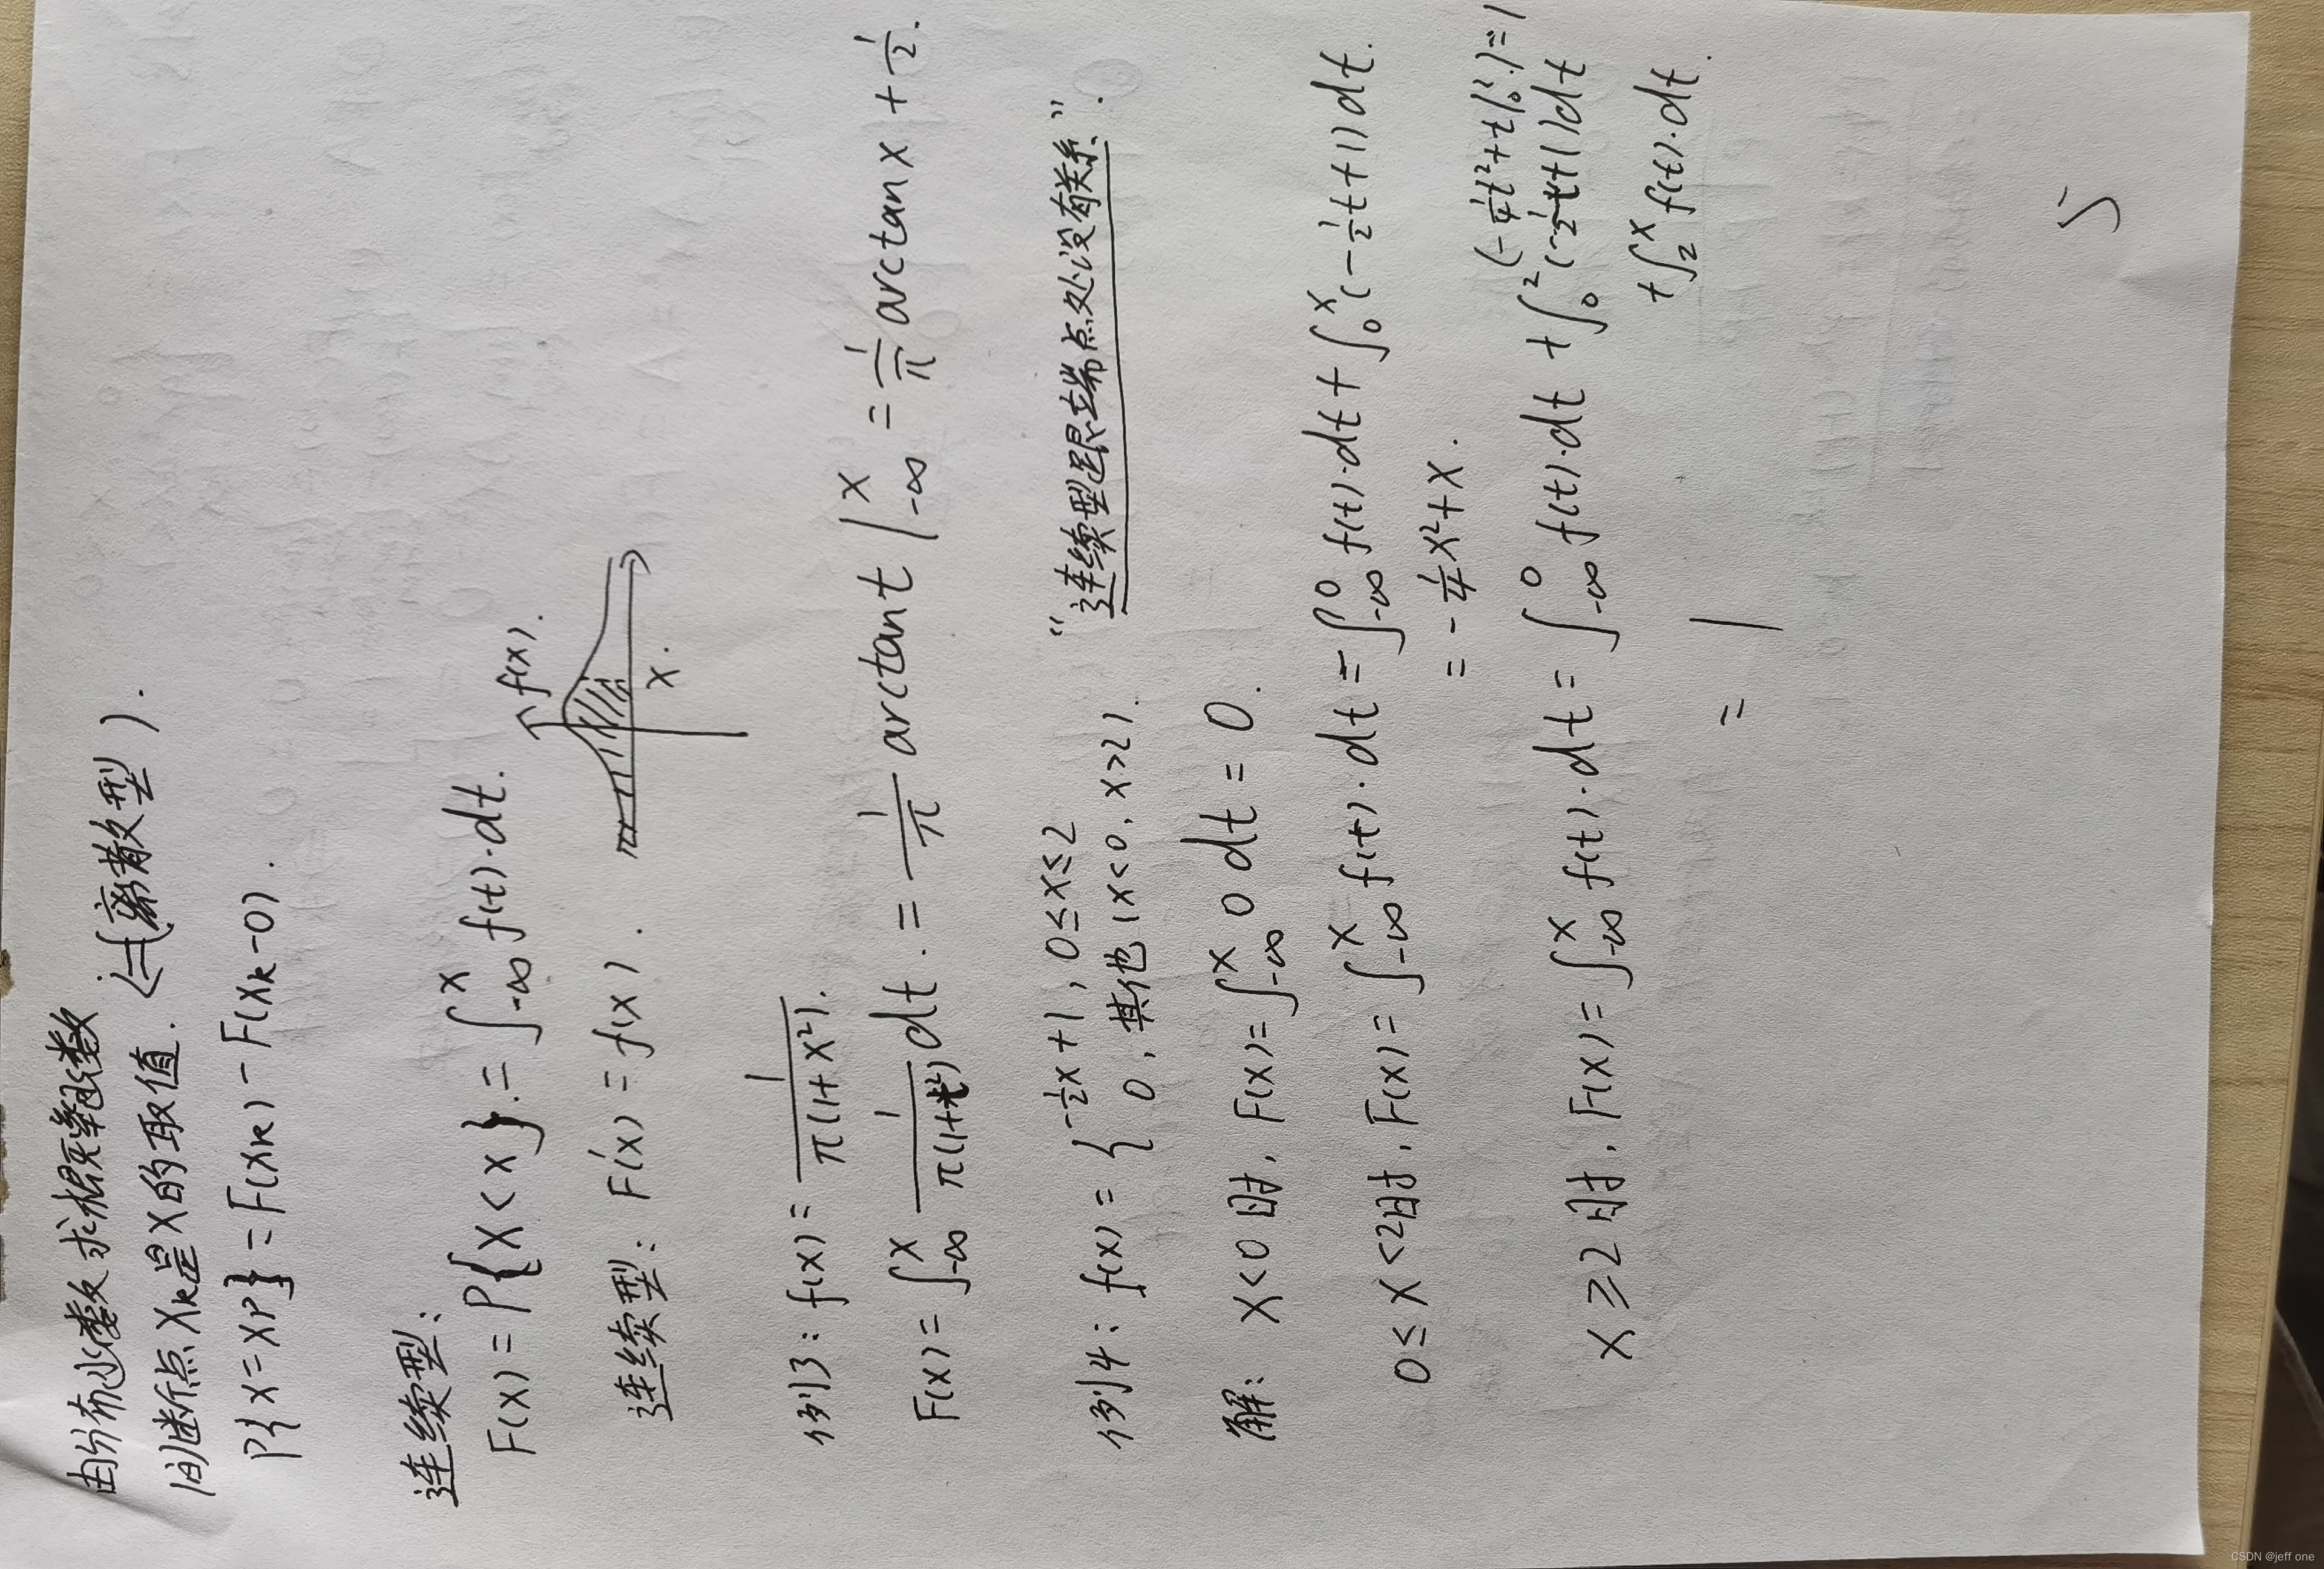 由分布函数求概率函数
间断点 Xk是X的取值. (离散型).
P{X=XP}=F(Xk)-F(Xk-0).
连续型:
F(x)=P{X<x}.=∫_{-∞}^{x} f(t)·dt.
f(x).
x.
连续型: F'(x)=f(x).
例3: f(x)=\frac{1}{π(1+x²)}.
F(x)=∫_{-∞}^{x} \frac{1}{π(1+t²)}dt.=\frac{1}{π}arctant|_{-∞}^{x}=\frac{1}{π}arctanx+\frac{1}{2}.
例4: f(x)={-\frac{1}{2}x+1, 0≤x≤2
0, 其他(x<0, x>2).
“连续型跟端点处没有关系”.
解: x<0时, F(x)=∫_{-∞}^{x} 0dt=0.
0≤x<2时, F(x)=∫_{-∞}^{x} f(t)·dt=∫_{-∞}^{0} f(t)·dt+∫_{0}^{x}(-\frac{1}{2}t+1)dt.
=-\frac{1}{4}x²+x.
(-\frac{1}{4}t²+t|_{0}^{2})=1
x≥2时, F(x)=∫_{-∞}^{x} f(t)·dt=∫_{-∞}^{0} f(t)·dt+∫_{0}^{2}(-\frac{1}{2}t+1)dt
+∫_{2}^{x} f(t)·dt.
=1
5
CSDN @jeff one